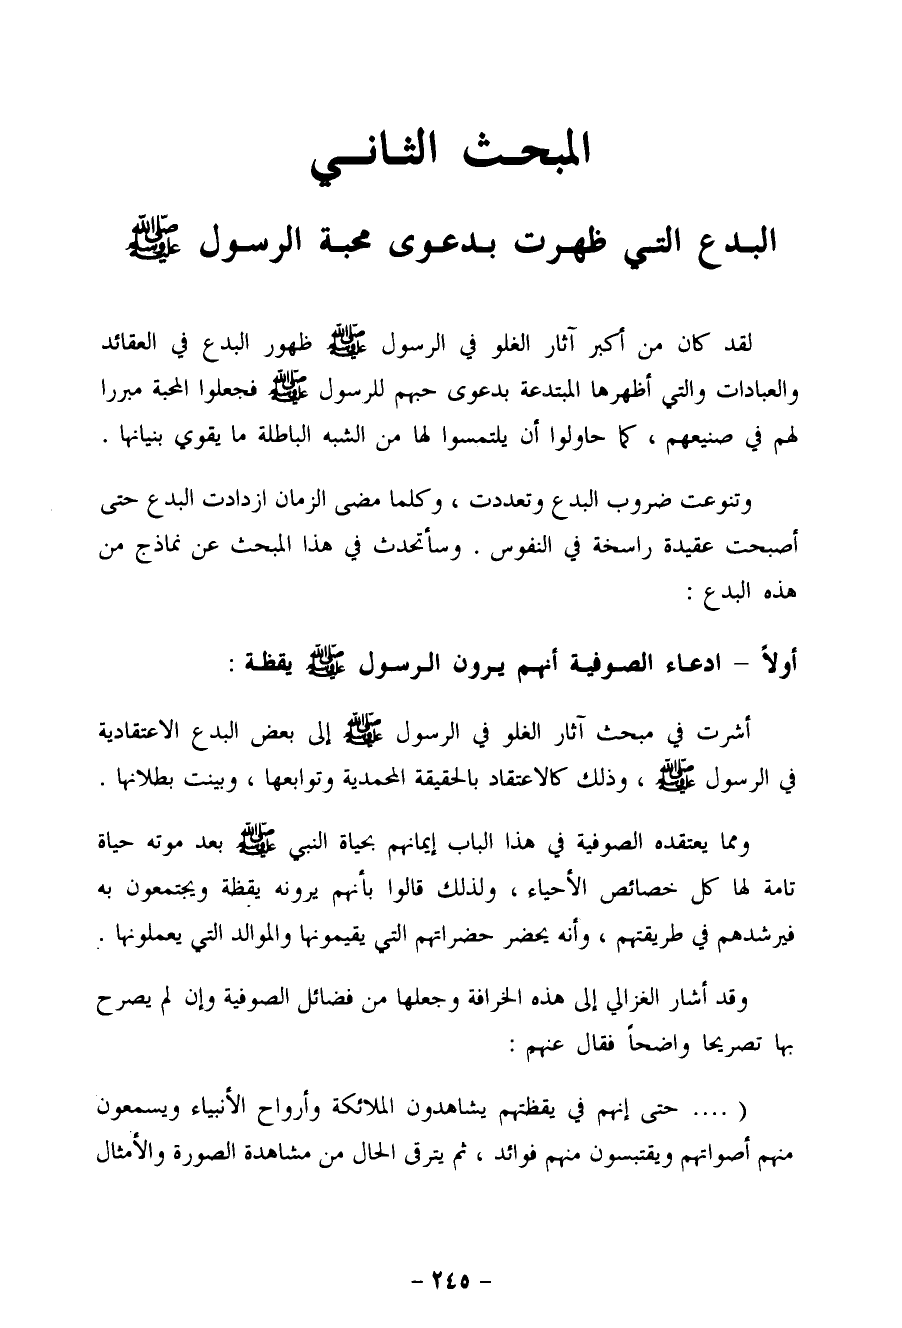 المبحث الثاني
البدع التي ظهرت بدعوى محبة الرسول ﷺ
لقد كان من أكبر آثار الغلو في الرسول ﷺ ظهور البدع في العقائد
والعبادات والتي أظهرها المبتدعة بدعوى حبهم للرسول ﷺ فجعلوا المحبة مبررا
لهم في صنيعهم ، كما حاولوا أن يلتمسوا لها من الشبه الباطلة ما يقوي بنيانها .
وتنوعت ضروب البدع وتعددت ، وكلما مضى الزمان ازدادت البدع حتى
أصبحت عقيدة راسخة في النفوس . وسأتحدث في هذا المبحث عن نماذج من
هذه البدع :
أولاً – ادعاء الصوفية أنهم يرون الرسول ﷺ يقظة :
أشرت في مبحث آثار الغلو في الرسول ﷺ إلى بعض البدع الاعتقادية
في الرسول ﷺ ، وذلك كالاعتقاد بالحقيقة المحمدية وتوابعها ، وبينت بطلانها .
ومما يعتقده الصوفية في هذا الباب إيمانهم بحياة النبي ﷺ بعد موته حياة
تامة لها كل خصائص الأحياء ، ولذلك قالوا بأنهم يرونه يقظة ويجتمعون به
فيرشدهم في طريقتهم ، وأنه يحضر حضراتهم التي يقيمونها والموالد التي يعملونها .
وقد أشار الغزالي إلى هذه الخرافة وجعلها من فضائل الصوفية وإن لم يصرح
بها تصريحا واضحاً فقال عنهم :
( .... حتى إنهم في يقظتهم يشاهدون الملائكة وأرواح الأنبياء ويسمعون
منهم أصواتهم ويقتبسون منهم فوائد ، ثم يترقى الحال من مشاهدة الصورة والأمثال
- ٢٤٥ -